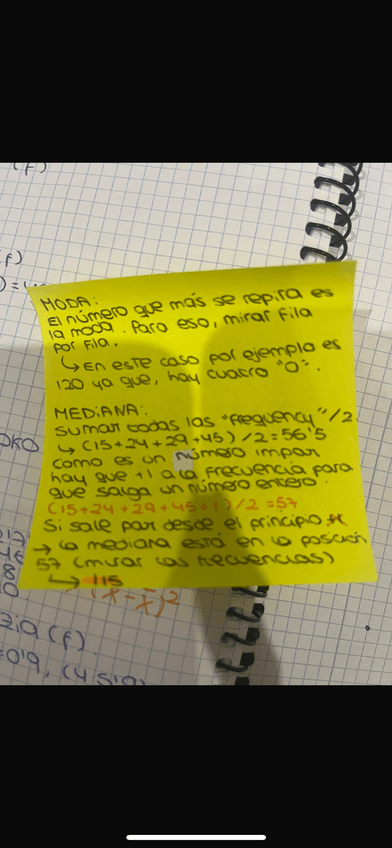 (f)
MODA:
El número que más se repira es
la moda. Para eso, mirar fila
por fila.
↳ En este caso por ejemplo es
120 ya que, hay cuatro "0".
MEDIANA:
Sumar todas las "frequency"/2
↳ (15+24+29+45)/2=56'5
Como es un número impar
hay que +1 a la frecuencia para
que salga un número entero.
(15+24+29+45+1)/2=57
Si sale par desde el principio
→ la mediana está en la posición
57 (mirar las frecuencias)
↳ 115
(x-x̄)²
zia (f).